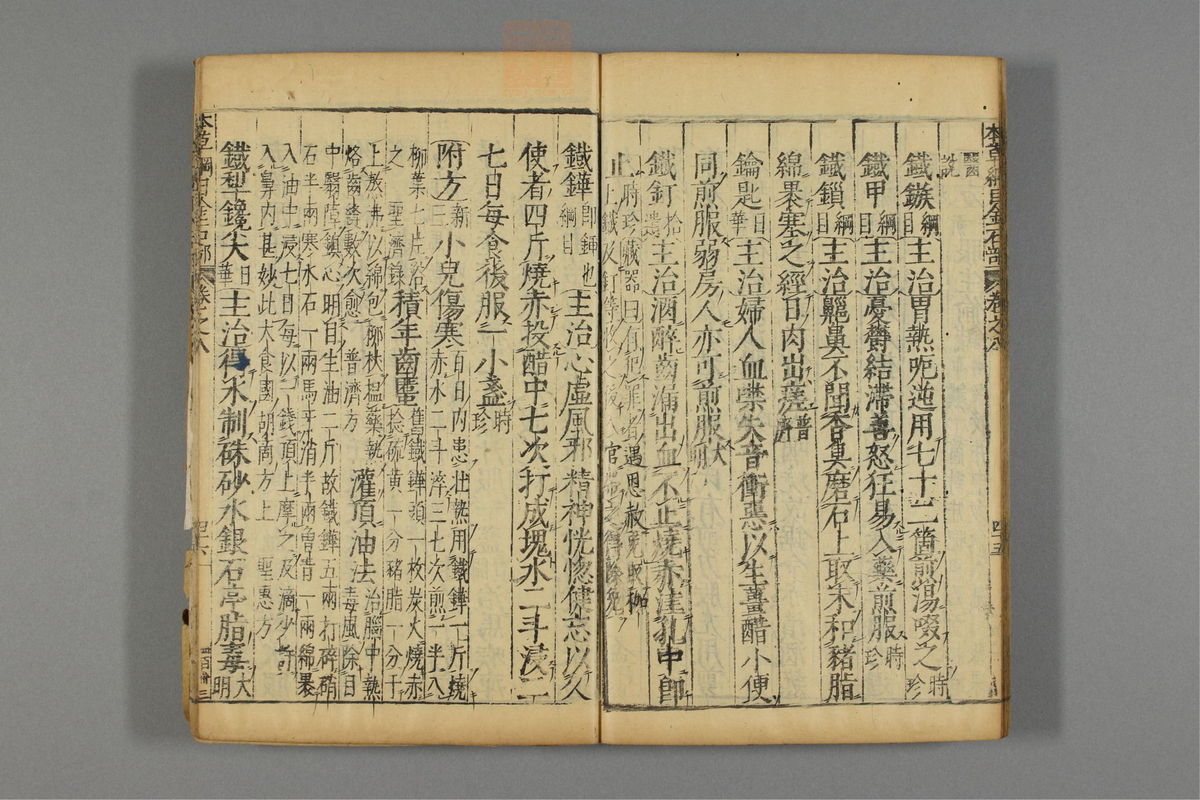 本草綱目金石部 卷之八 四十五
鐵鏃綱目主治胃熱呃逆用七十二箇煎湯啜之時珍
鐵甲綱目主治憂鬱結滯善怒狂易入藥煎服時珍
鐵鎖綱目主治齆鼻不聞香臭磨石上取末和豬脂
綿裹塞之經日肉出瘥普濟
鑰匙日華主治婦人血噤失音衝惡以生薑醋小便
同煎服弱房人亦可煎服大明
鐵釘拾遺主治酒醉齒漏出血不止燒赤注孔中即
止時珍藏器曰有犯罪者遇恩赦免取枷
上鐵及釘等收之後入官帶之得除免
鐵鏵綱目即鍤也主治心虛風邪精神恍惚健忘以久
使者四斤燒赤投醋中七次打成塊水二斗浸二
七日每食後服一小盞時珍
附方新三小兒傷寒百日內患壯熱用鐵鏵一斤燒
赤水二斗淬三七次煎一半入
柳葉七片浴
之 聖濟錄積年齒䘌舊鐵鏵頭一枚炭火燒赤
捻硫黃一分豬脂一分于
上熬沸以綿包柳杖搵藥熱
烙齒縫數次愈 普濟方灌頂油法治腦中熱
毒風除目
中翳障鎮心明目生油二斤故鐵鏵五兩打碎硝
石半兩寒水石一兩馬牙消半兩曾青一兩綿裹
入油中浸七日每以一錢頂上摩之及滴少許
入鼻內甚妙此大食國胡商方上 聖惠方
鐵犁鑱尖日華主治得水制硃砂水銀石亭脂毒大明
本草綱目金石部 卷之八 四十六